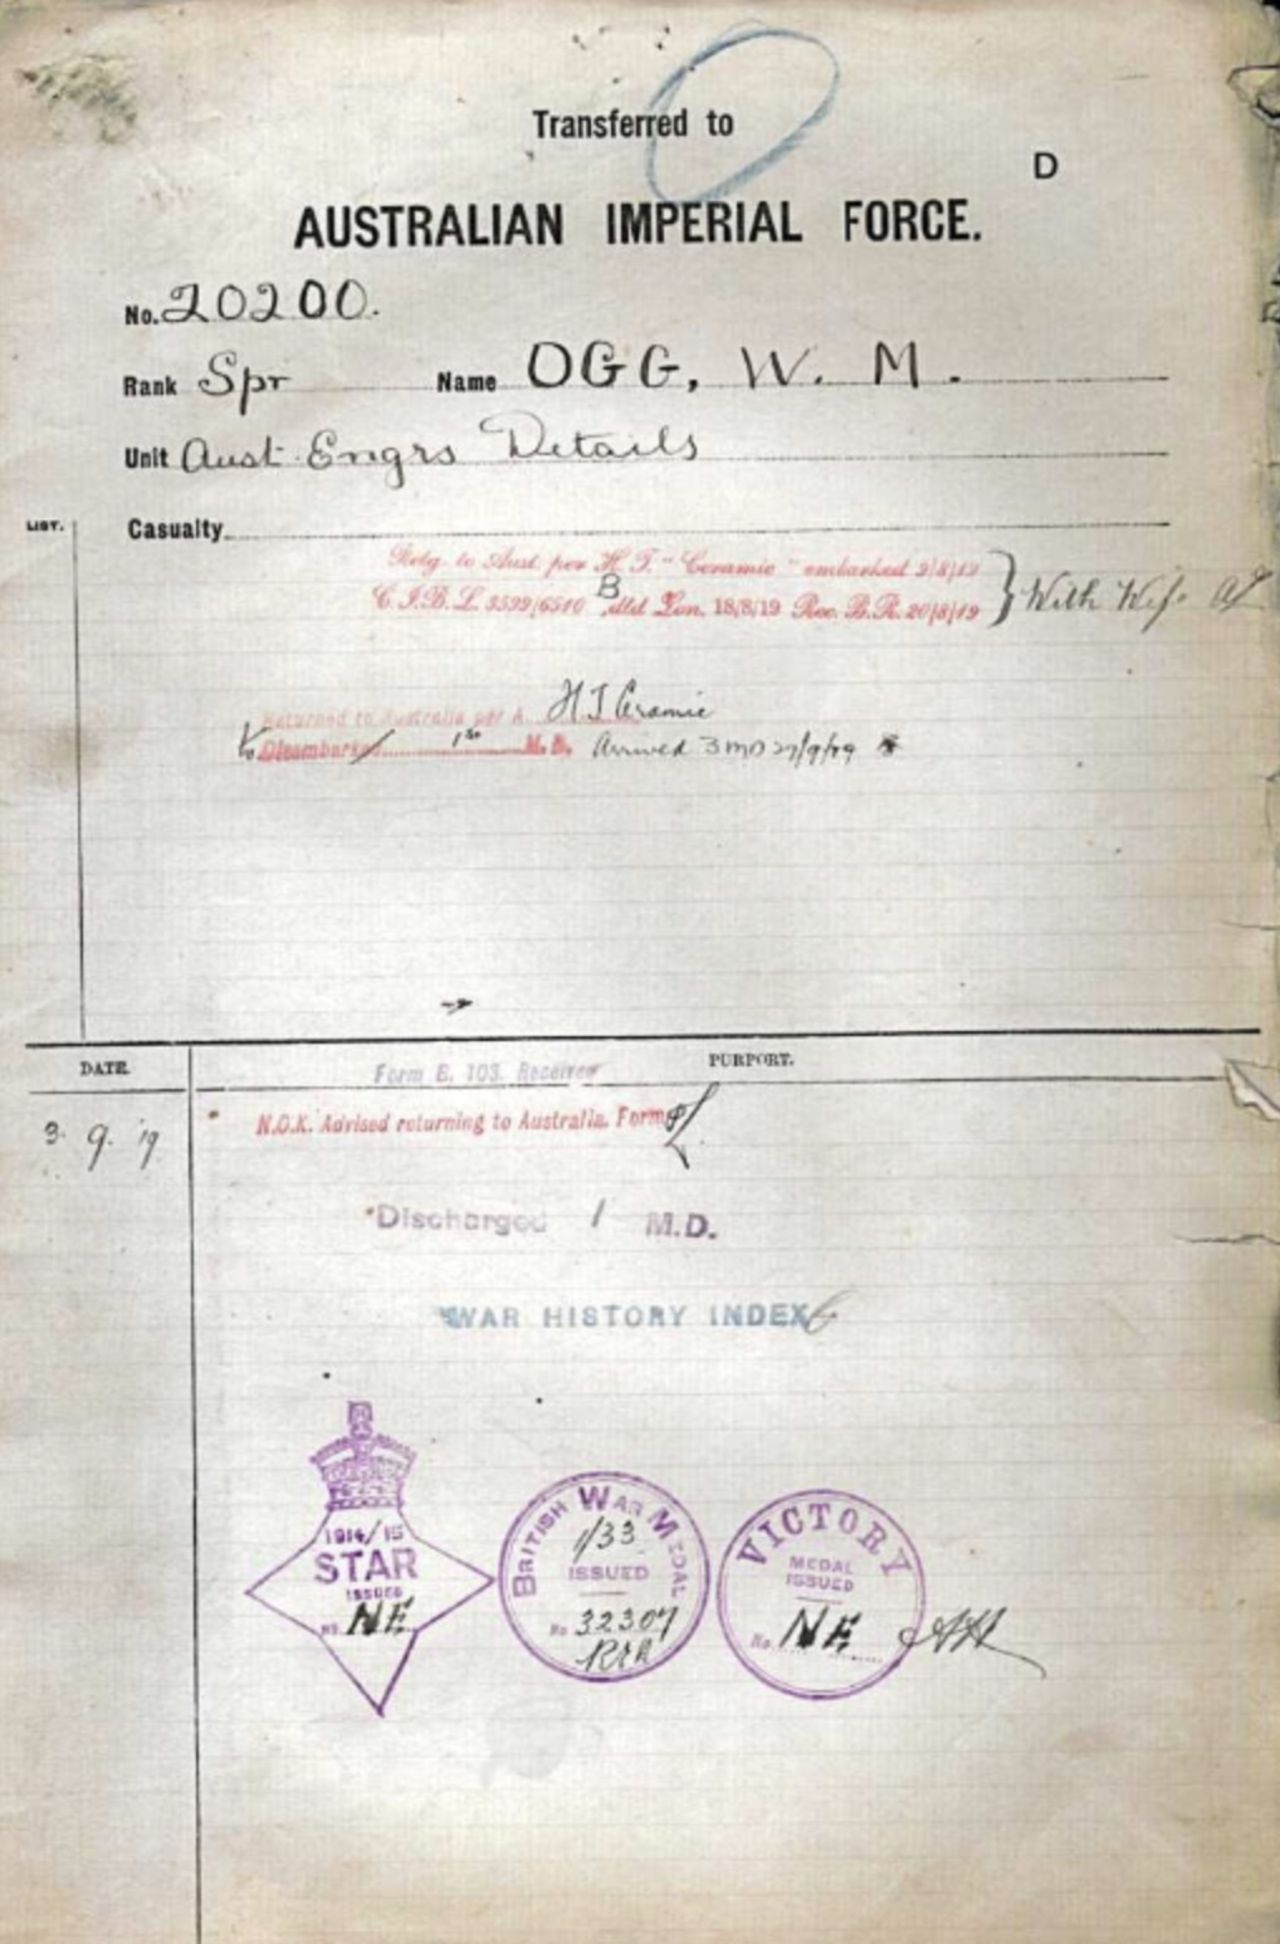 Transferred to
D
AUSTRALIAN IMPERIAL FORCE.
No. 20200.
Rank Spr Name OGG, W. M.
Unit Aust Engrs Details
LIST.
Casualty
Retg. to Aust. per H. T. "Ceramic" embarked 9/8/19
C.I.B.L. 3599/6540 B dtd Lon. 18/8/19 Rec. B.R. 20/8/19 } With Wife
Returned to Australia per H T Ceramic
Disembarked 1st M.D. Arrived 3 MD 27/9/19
DATE. PURPORT.
Form B. 103. Received
3. 9. 19 N.O.K. Advised returning to Australia. Form
Discharged 1 M.D.
WAR HISTORY INDEX
1914/15
STAR
ISSUED
No. NE
BRITISH WAR MEDAL
1/33
ISSUED
No 32307
VICTORY
MEDAL
ISSUED
No. NE